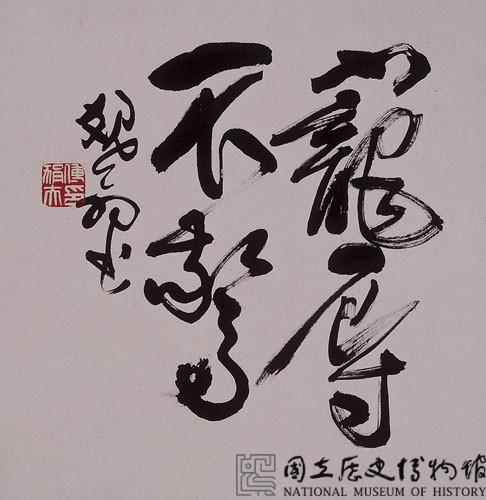 寵辱
不驚
國立歷史博物館
NATIONAL MUSEUM OF HISTORY